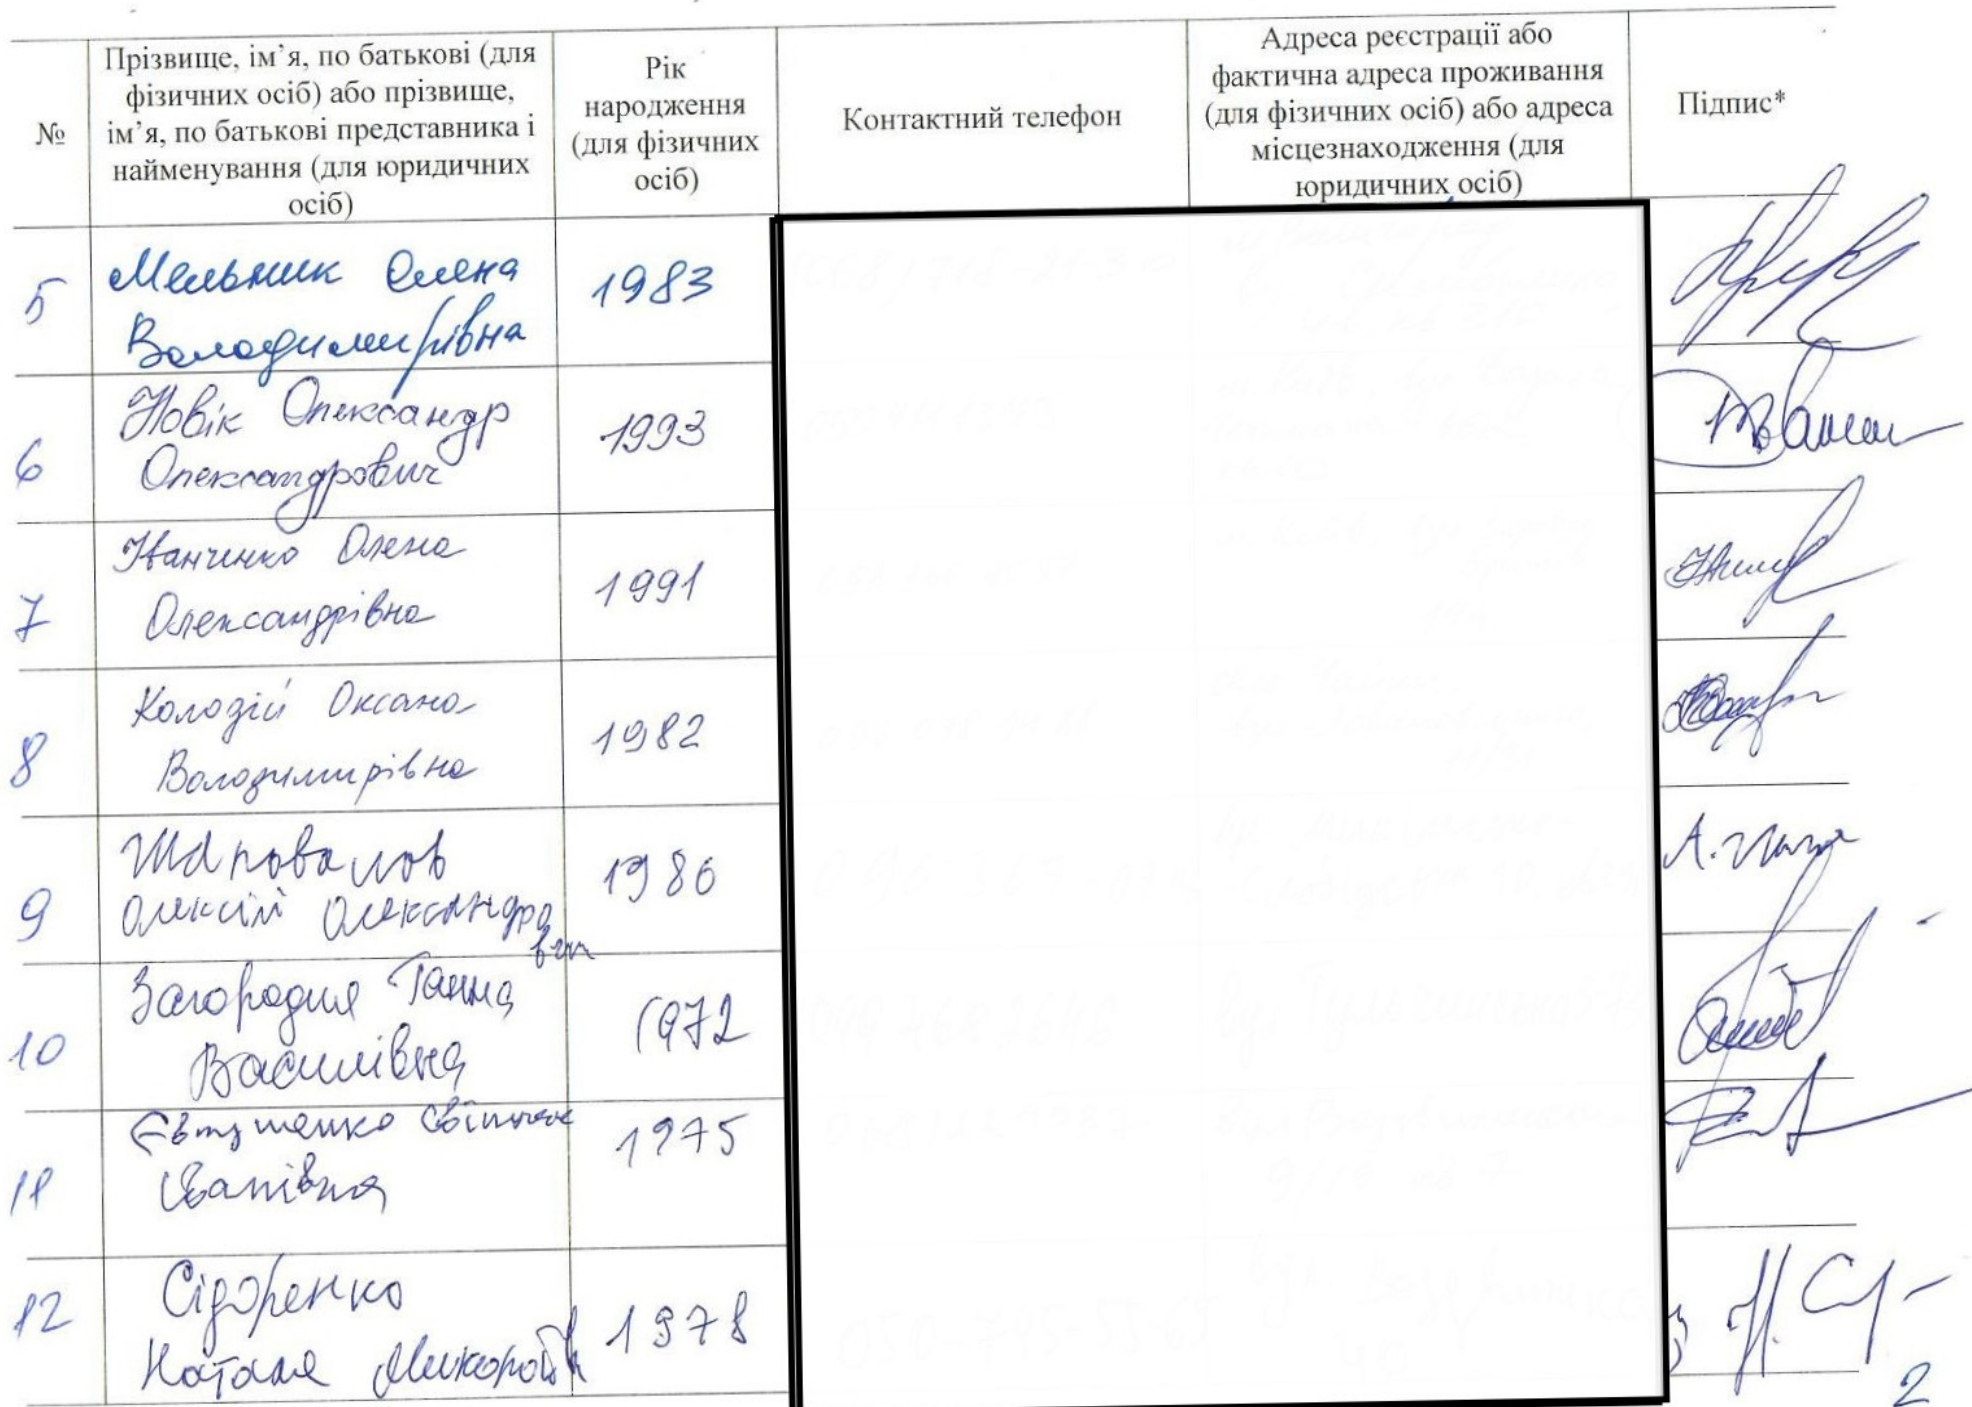 №
Прізвище, ім’я, по батькові (для
фізичних осіб) або прізвище,
ім’я, по батькові представника і
найменування (для юридичних
осіб)
Рік
народження
(для фізичних
осіб)
Контактний телефон
Адреса реєстрації або
фактична адреса проживання
(для фізичних осіб) або адреса
місцезнаходження (для
юридичних осіб)
Підпис*
5
Мельник Олена
Володимирівна
1983
6
Новік Олександр
Олександрович
1993
7
Іванченко Олена
Олександрівна
1991
8
Колодій Оксана
Володимирівна
1982
9
Шаповалов
Олексій Олександро
вич
1986
10
Загородня Ганна
Василівна
1972
11
Євтушенко Світлана
Іванівна
1975
12
Сідоренко
Наталя
1978
2